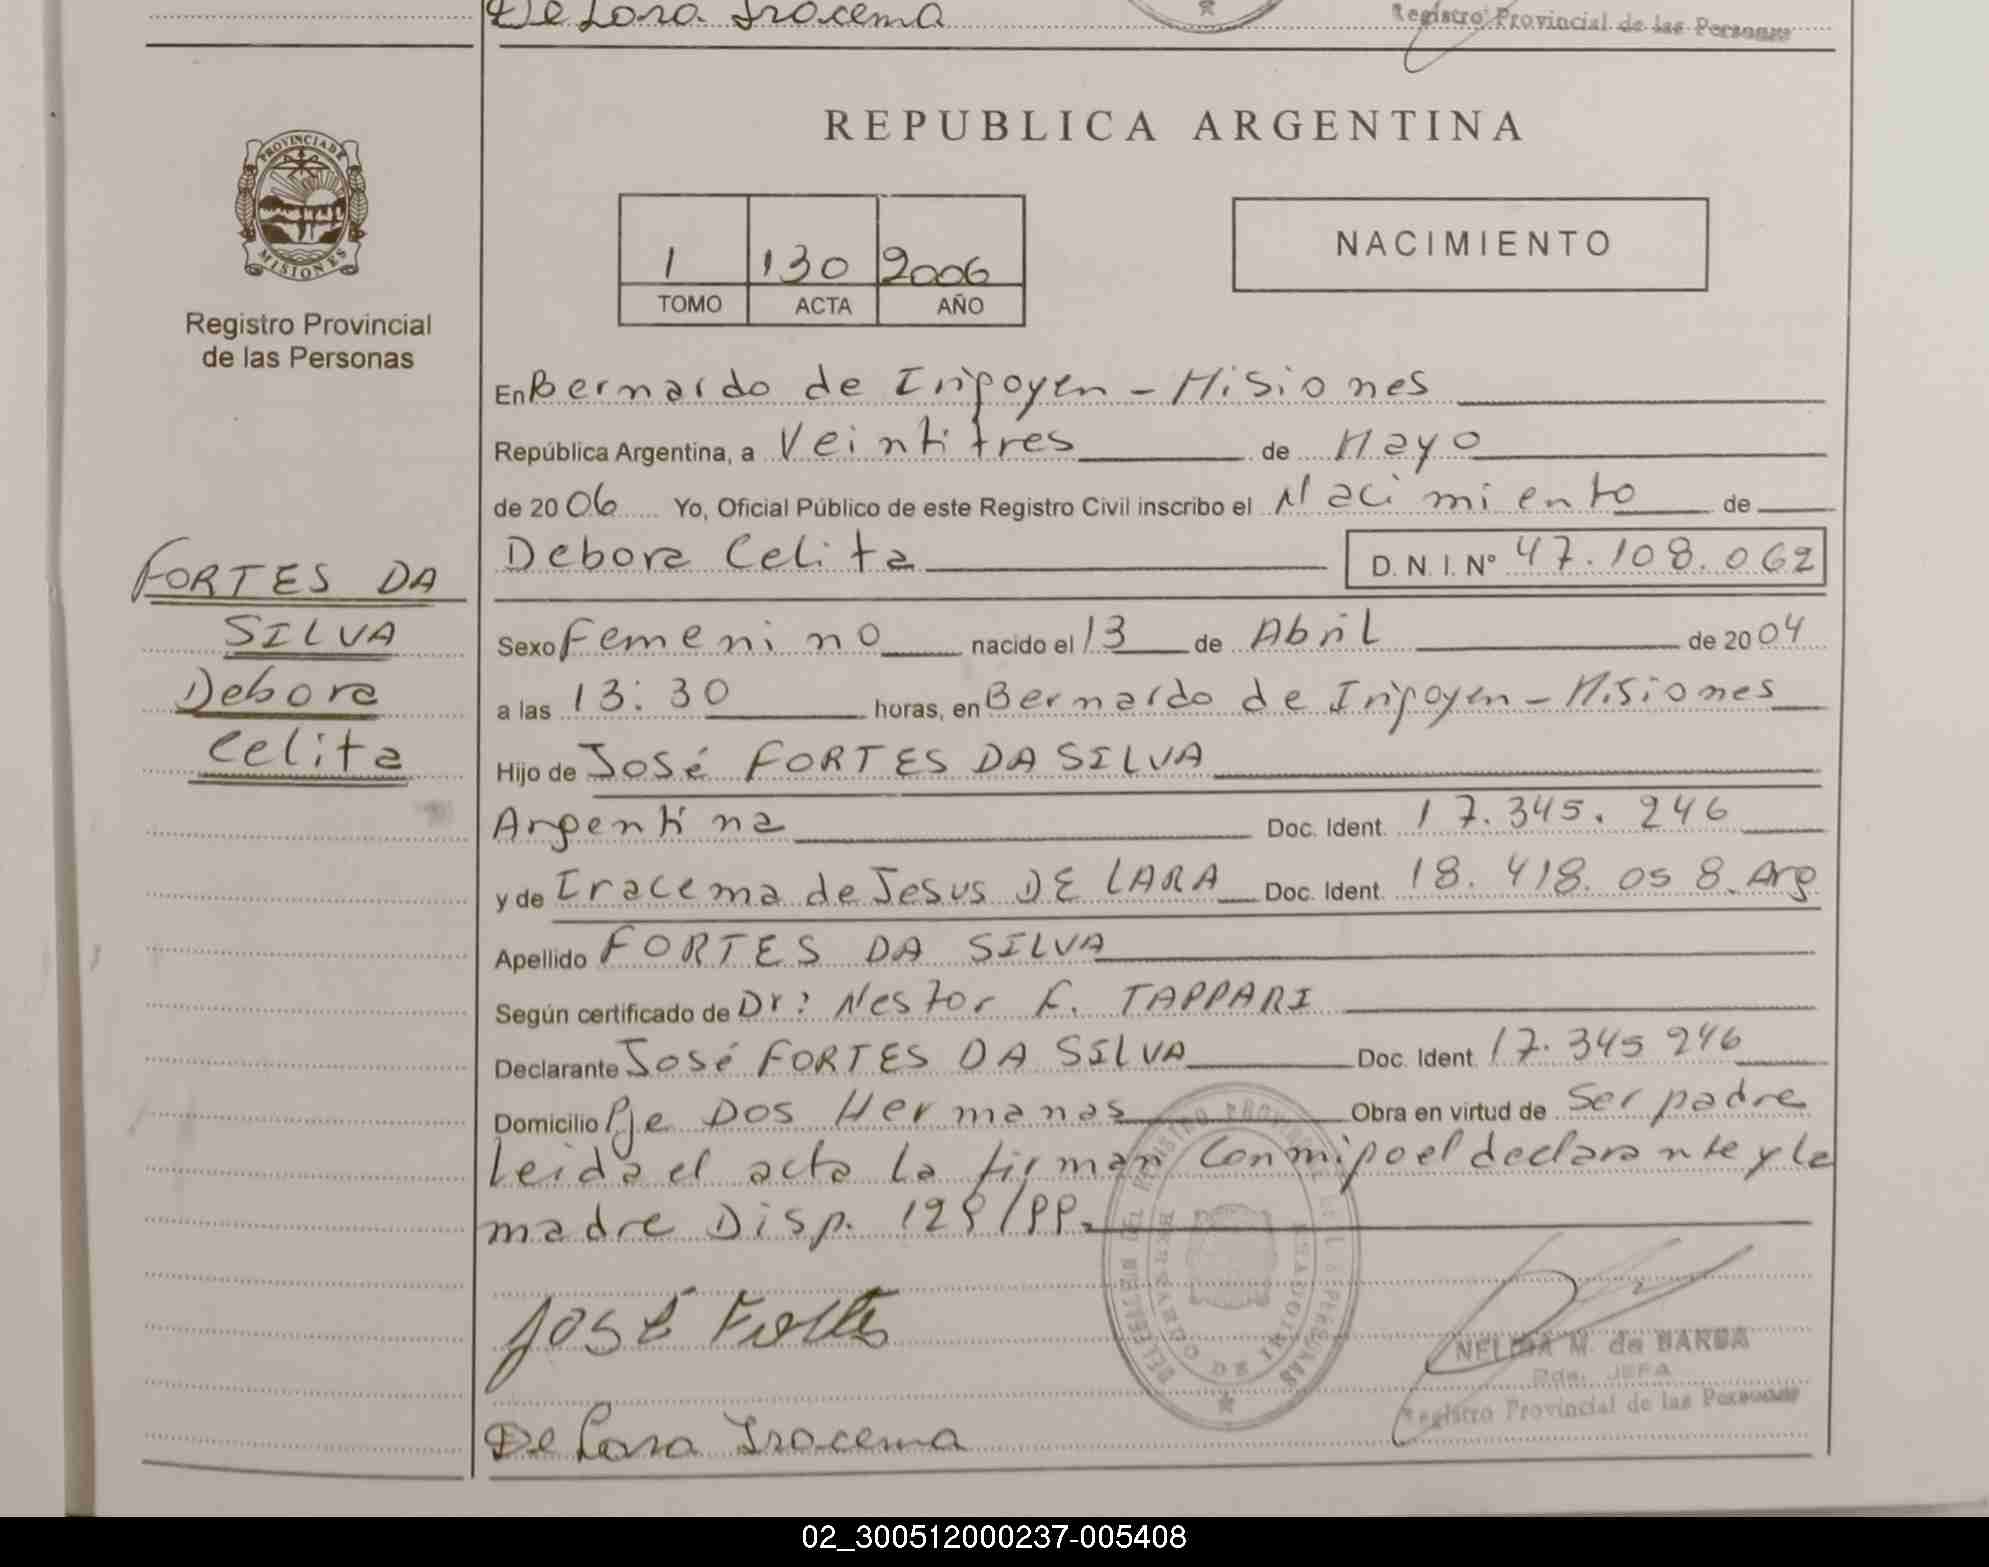 De Lara Iracema
Registro Provincial de las Personas
PROVINCIA DE
MISIONES
Registro Provincial
de las Personas
REPUBLICA ARGENTINA
1 130 2006
TOMO ACTA AÑO
NACIMIENTO
FORTES DA
SILVA
Debora
Celita
En Bernardo de Irigoyen - Misiones
República Argentina, a Veintitres de Mayo
de 2006 Yo, Oficial Público de este Registro Civil inscribo el Nacimiento de
Debora Celita D. N. I. Nº 47.108.062
Sexo Femenino nacido el 13 de Abril de 2004
a las 13:30 horas, en Bernardo de Irigoyen - Misiones
Hijo de José FORTES DA SILVA
Argentina Doc. Ident. 17.345.246
y de Iracema de Jesus DE LARA Doc. Ident. 18.418.058. Arg
Apellido FORTES DA SILVA
Según certificado de Dr: Nestor F. TAPPARI
Declarante José FORTES DA SILVA Doc. Ident. 17.345 246
Domicilio Pje Dos Hermanas Obra en virtud de Ser padre
Leida el acta la firman conmigo el declarante y la
madre Disp.
José Fortes
De Lara Iracema
M. de
JEFA
Registro Provincial de las Personas
02_300512000237-005408